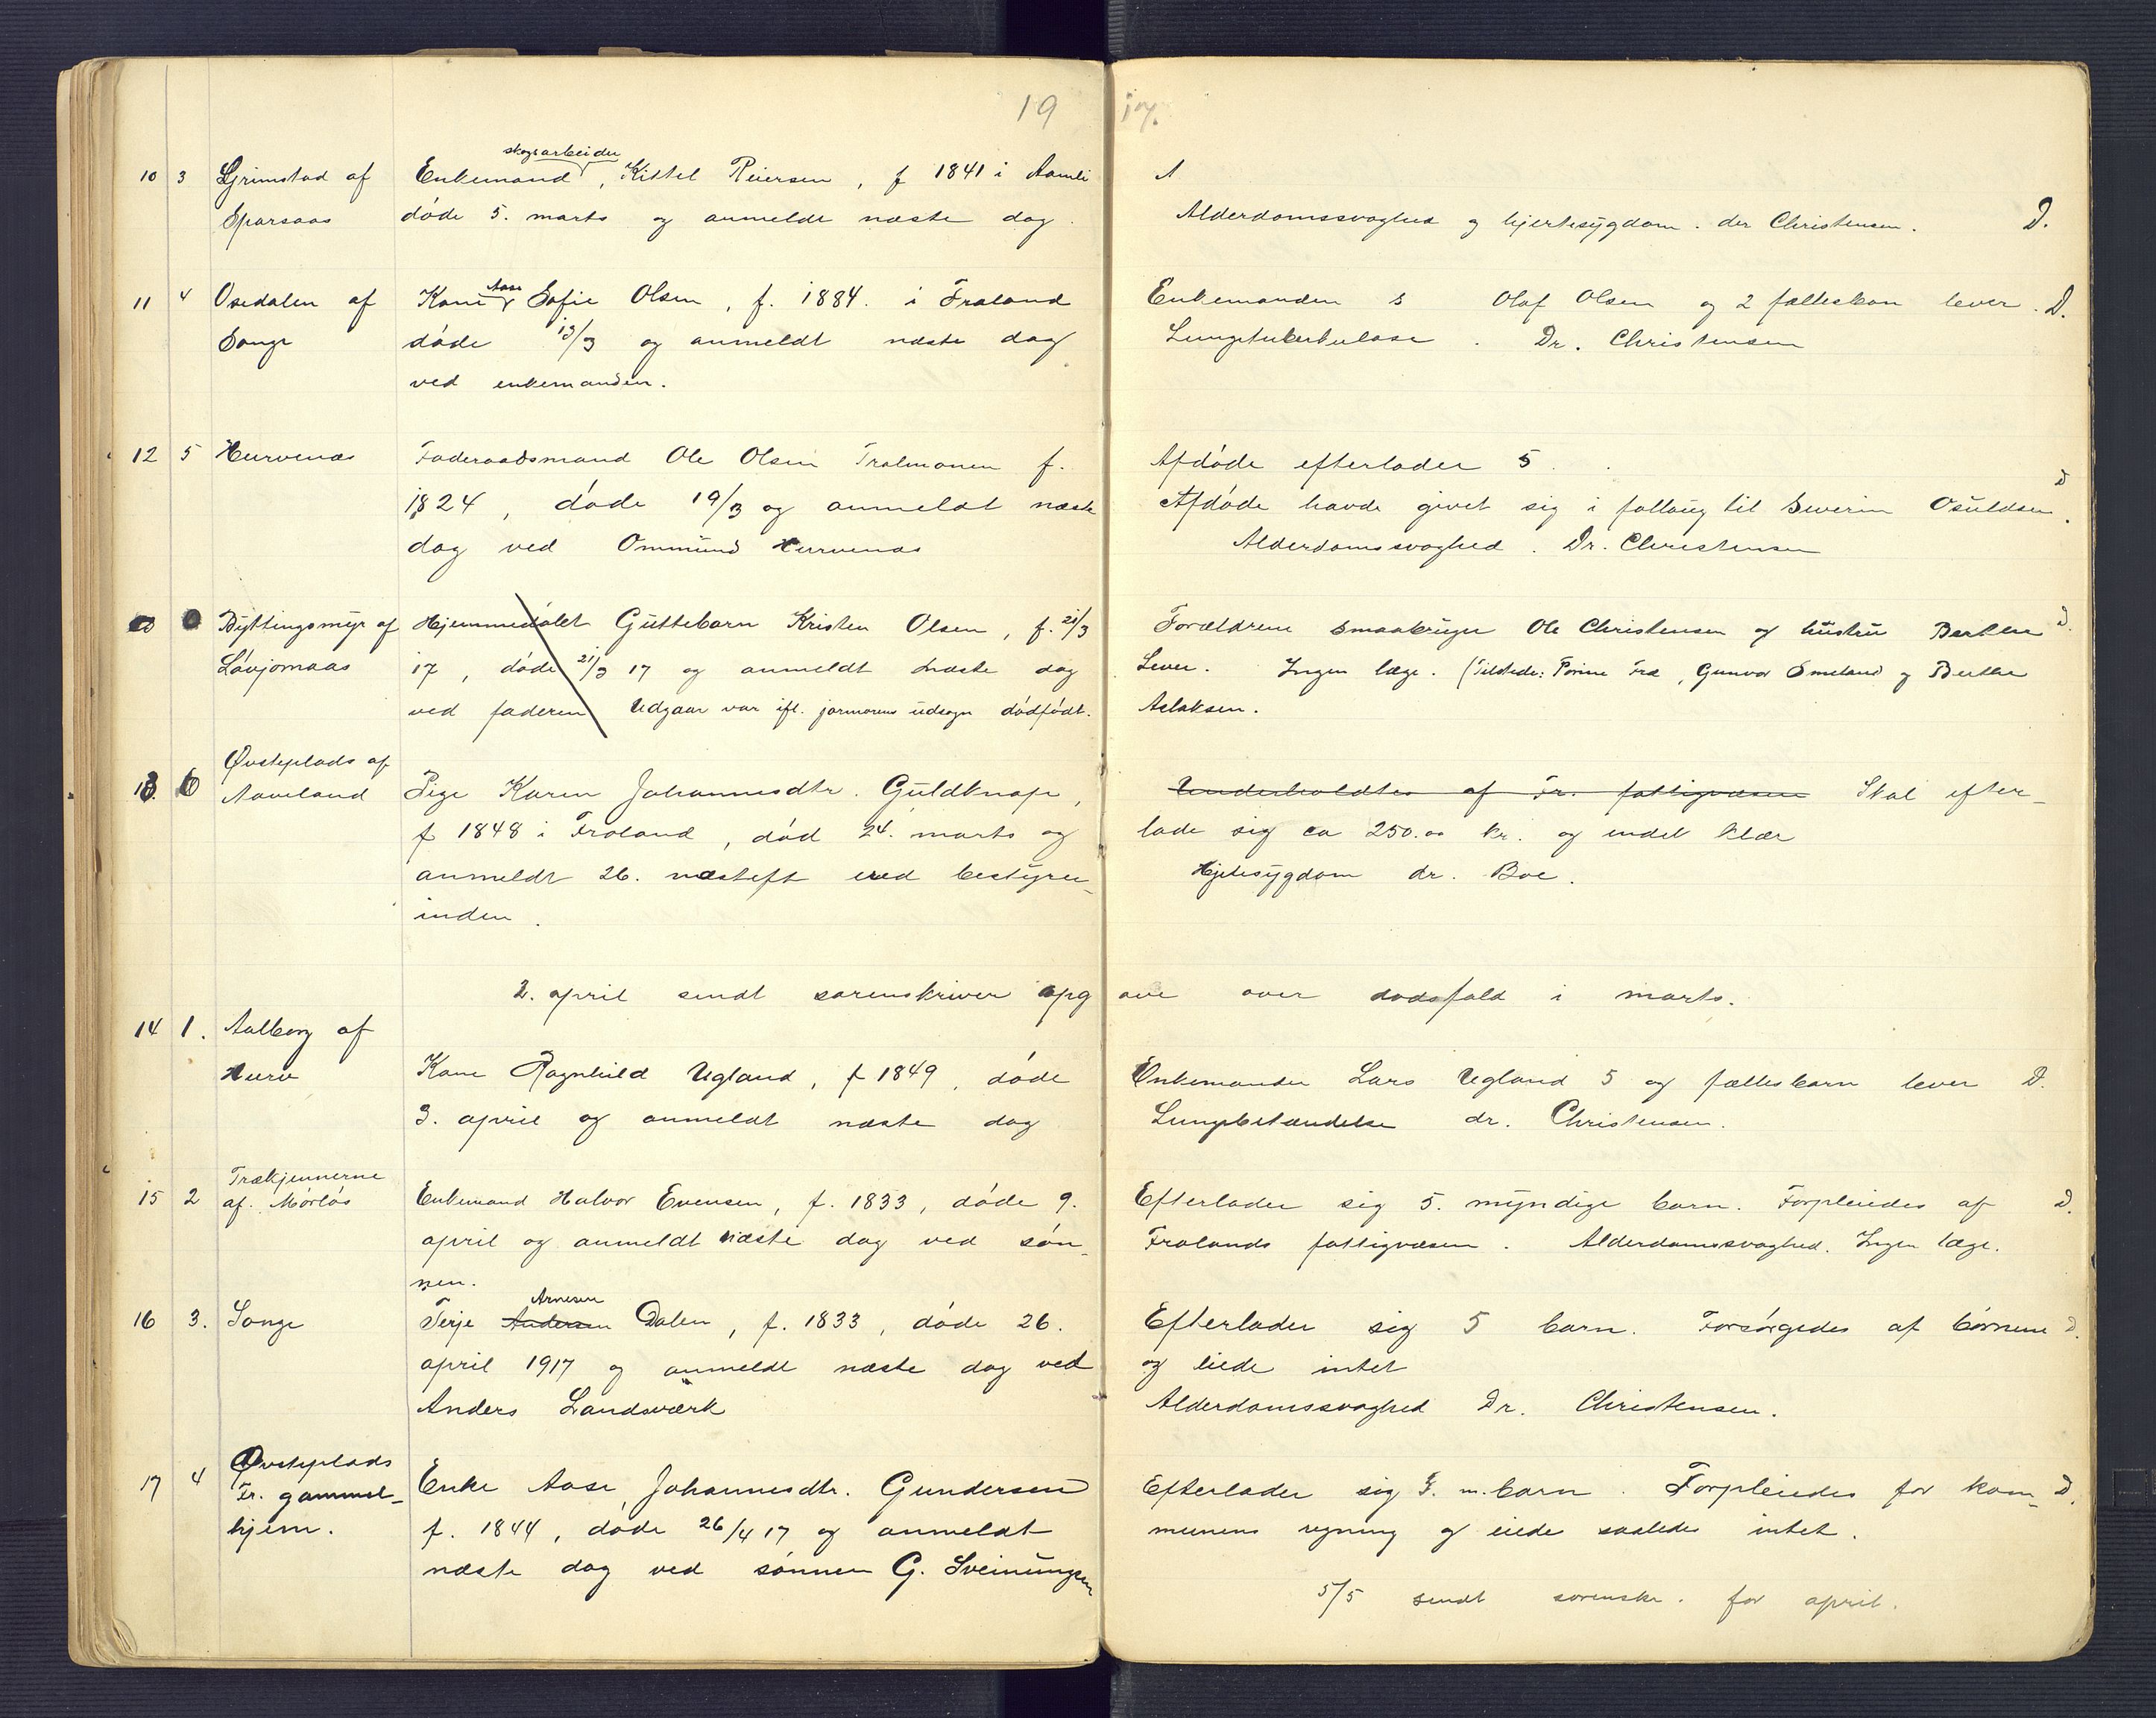 19 17.
10 3 Grimstad af Enkemand skogsarbeider, Kittel Reiersen, f 1841 i Aamli
Sparsaas døde 5. marts og anmeldt næste dag.
Alderdomssvaghed og hjertesygdom. der Christensen. D.
11 4 Osedalen af Kone Aase Sofie Olsen, f. 1884. i Froland
Songe døde 13/3 og anmeldt næste dag
ved enkemanden.
Enkemanden s Olaf Olsen og 2 fællesbarn lever. D.
Lungetuberkulose. Dr. Christensen
12 5 Hurvenæs Føderaadsmand Ole Olsen Tralmonen f.
1824, døde 19/3 og anmeldt næste
dag ved Ommund Hurvenæs
Afdøde efterlader 5.
Afdøde havde givet sig i fattaug til Severin Osuldsen. D
Alderdomssvaghed. Dr. Christensen
Byttingsmyr af Hjemmedøbt Guttebarn Kristen Olsen, f. 21/3
Løvjomaas 17, døde 21/3 17 og anmeldt næste dag
ved faderen Udgaar var ifl. jormorens udsagn dødfødt.
Forældrene smaabruger Ole Christensen og hustru Berthe D.
Lever. Ingen læge. (Tilstede: Torine Træ, Gunvor Smeland og Berthe
Aslaksen.
Øvsteplads af
13. 6 Aaveland Pige Karen Johannesdtr. Guldknap,
f 1848 i Froland, død 24. marts og
anmeldt 26. næsteft ved bestyrer-
inden.
Underholdtes af Fr. fattigvæsen Skal efter-
lade sig ca 250.00 kr. og endel klær
Hjertesygdom dr. Boe.
2. april sendt sorenskriver opgave over dødsfald i marts.
14 1. Aalborg af
Hurv Kone Ragnhild Ugland, f 1849, døde
3. april og anmeldt næste dag
Enkemanden Lars Ugland 5 og fællesbarn lever D.
Lungebetændelse dr. Christensen.
Trækjennerne
15 2 af. Mørløs Enkemand Halvor Evensen, f. 1833, døde 9.
april og anmeldt næste dag ved søn-
nen.
Efterlader sig 5. myndige barn. Forpleiedes af D.
Frolands fattigvæsen. Alderdomssvaghed. Ingen læge.
16 3. Songe Terje Andersen Arnesen Dalen, f. 1833, døde 26.
april 1917 og anmeldt næste dag ved
Anders Landsværk
Efterlader sig 5 barn. Forsørgedes af børnene D.
og eiede intet
Alderdomssvaghed Dr. Christensen.
Øvsteplads
17 4 Fr. gammel- Enke Aase Johannesdtr. Gundersen
hjem. f. 1844, døde 26/4 17 og anmeldt
næste dag ved sønnen G. Sveinungsen
Efterlader sig m. barn. Forpleiedes for kom- D.
munens regning og eiede saaledes intet.
5/5 sendt sorenskr. for april.